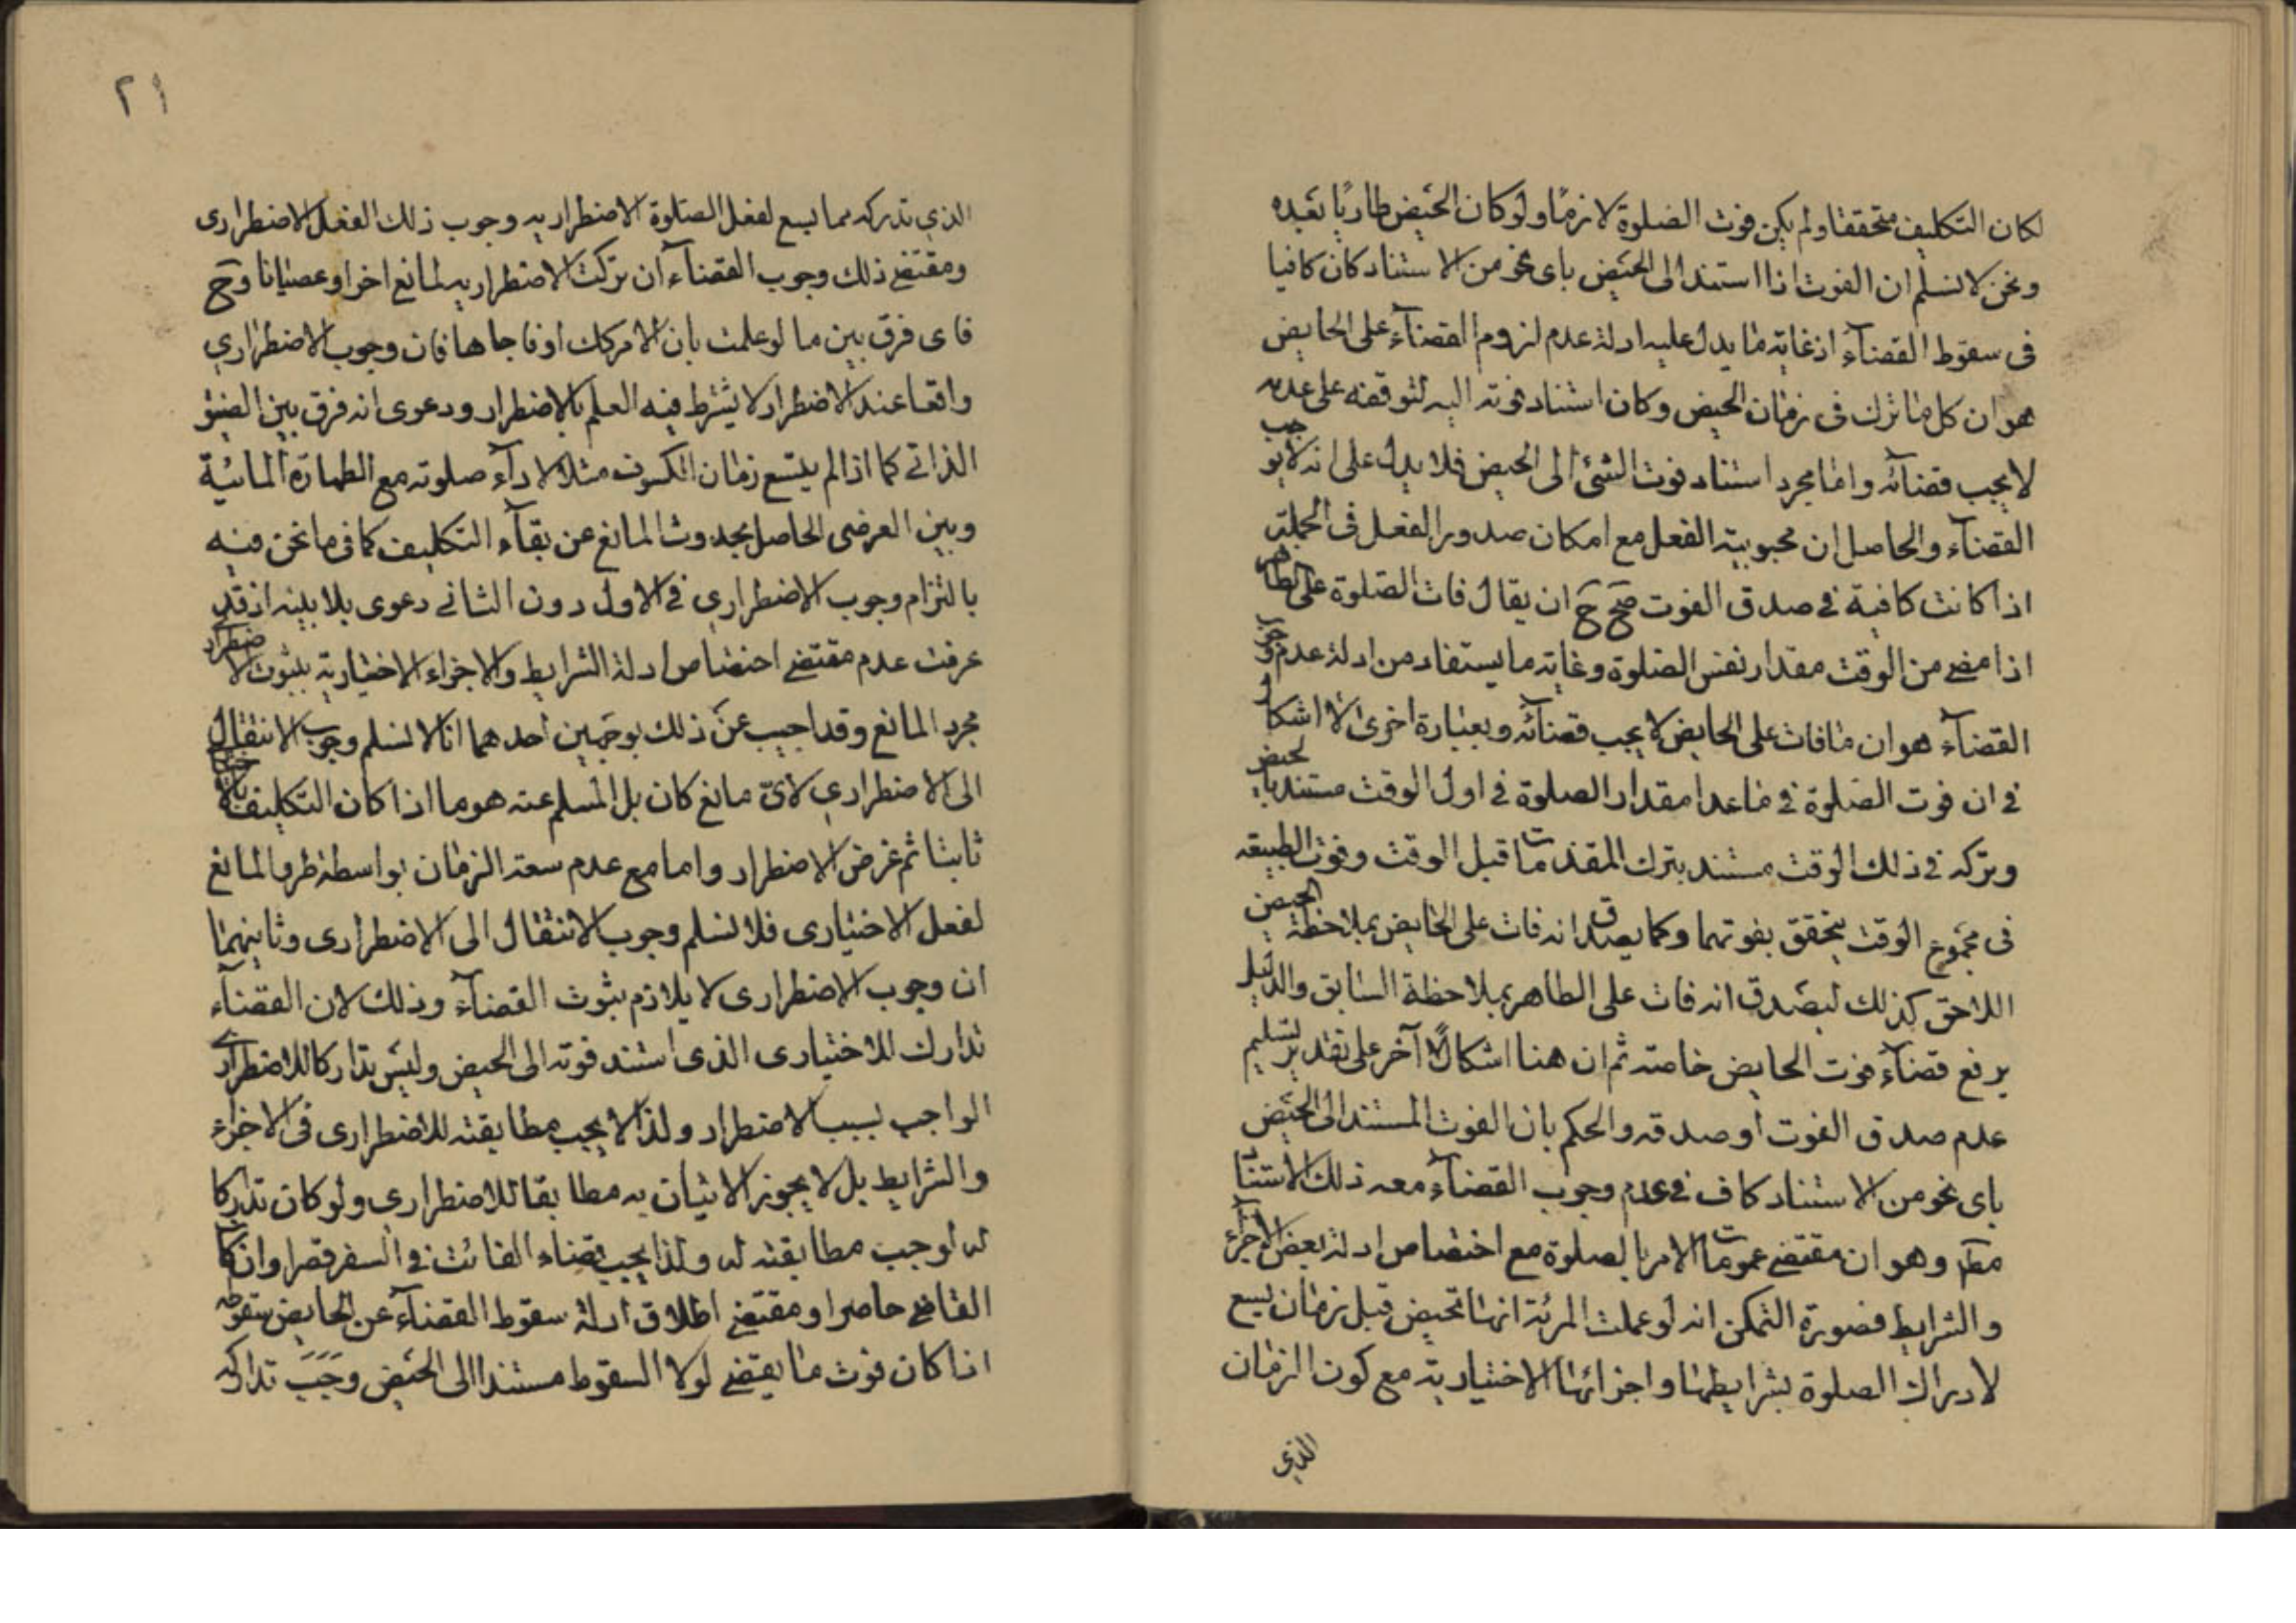 لكان التكليف متحققا ولم يكن فوت الصلوة لازمًا ولو كان الحيض طاريًا بعده
ونحن لا نسلم ان الفوت اذا استند الى الحيض باى نحو من الاستناد كان كافيا
فى سقوط القضآء اذ غاية ما يدل عليه ادلة عدم لزوم القضآء على الحايض
هو ان كل ما ترك فى زمان الحيض وكان استناد فوته اليه لتوقفه على عدمه
لا يجب قضائه واما مجرد استناد فوت الشئ الى الحيض فلا يدل على انه لا يوجب
القضآء والحاصل ان محبوبية الفعل مع امكان صدور الفعل فى الجملة
اذا كانت كافية فى صدق الفوت صح ح ان يقال فات الصلوة على الطاهر
اذا مضى من الوقت مقدار نفس الصلوة وغاية ما يستفاد من ادلة عدم وجوب
القضآء هو ان ما فات على الحايض لا يجب قضآئه وبعبارة اخرى لا اشكال
فى ان فوت الصلوة فى ما عدا مقدار الصلوة فى اول الوقت مستند بالحيض
وتركه فى ذلك الوقت مستند بترك المقدمات قبل الوقت وفوت الطبيعه
فى مجموع الوقت يتحقق بفوتهما وكما يصدق انه فات على الحايض بملاحظة الحيض
اللاحق كذلك ليصدق انه فات على الطاهر بملاحظة السابق والدليل
يرفع قضآء فوت الحايض خاصته ثم ان هنا اشكالًا آخر على تقدير تسليم
عدم صدق الفوت او صدقه والحكم بان الفوت المستند الى الحيض
باى نحو من الاستناد كاف فى عدم وجوب القضآء معه ذلك الاستناد
مطم وهو ان مقتضى عمومات الامر بالصلوة مع اختصاص ادلة بعض الاجزآء
والشرايط فصورة التمكن انه لو عملت المرئة انها تحيض قبل زمان يسع
لادراك الصلوة بشرايطها واجزائها الاختيارية مع كون الزمان
الذي
٢١
الذي تدركه مما يسع لفعل الصلوة الاضطراريه وجوب ذلك الفعل الاضطرارى
ومقتضى ذلك وجوب القضآء ان تركت الاضطراريه لمانع اخر او عصيانا وح
فاى فرق بين ما لو علمت بان الامر كك او فاجاها فان وجوب الاضطراري
واقعا عند الاضطرار لا يشترط فيه العلم بالاضطرار ودعوى انه فرق بين الضيق
الذاتى كما اذا لم يتسع زمان الكسوف مثلا لاداء صلوته مع الطهارة المائية
وبين العرضى الحاصل بحدوث المانع عن بقآء التكليف كما فى ما نحن فيه
بالتزام وجوب الاضطراري فى الاول دون الثانى دعوى بلا بينه اذ قد
عرفت عدم مقتضى اختصاص ادلة الشرايط والاجزاء الاختيارية بثبوت الاضطرار
مجرد المانع وقد اجيب عن ذلك بوجهين احدهما انا لا نسلم وجوب الانتقال
الى الاضطراري لاىّ مانع كان بل المسلم عنه هو ما اذا كان التكليف
ثابتا ثم عرض الاضطرار واما مع عدم سعة الزمان بواسطة طرو المانع
لفعل الاختيارى فلا نسلم وجوب الانتقال الى الاضطرارى وثانيهما
ان وجوب الاضطرارى لا يلازم بثوت القضآء وذلك لان القضآء
تدارك للاختيارى الذى استند فوته الى الحيض وليس تداركا للاضطراري
الواجب بسبب الاضطرار ولذا لا يجب مطابقته للاضطرارى فى الاجزاء
والشرايط بل لا يجوز الاتيان به مطابقا للاضطراري ولو كان تداركا
له لوجب مطابقته له ولذا يجب قضاء الفائت فى السفر قصرا وان كان
القاضى حاضرا ومقتضى اطلاق ادلة سقوط القضآء عن الحايض سقوطه
اذا كان فوت ما يقتضى لولا السقوط مستندا الى الحيض وجب تداركه